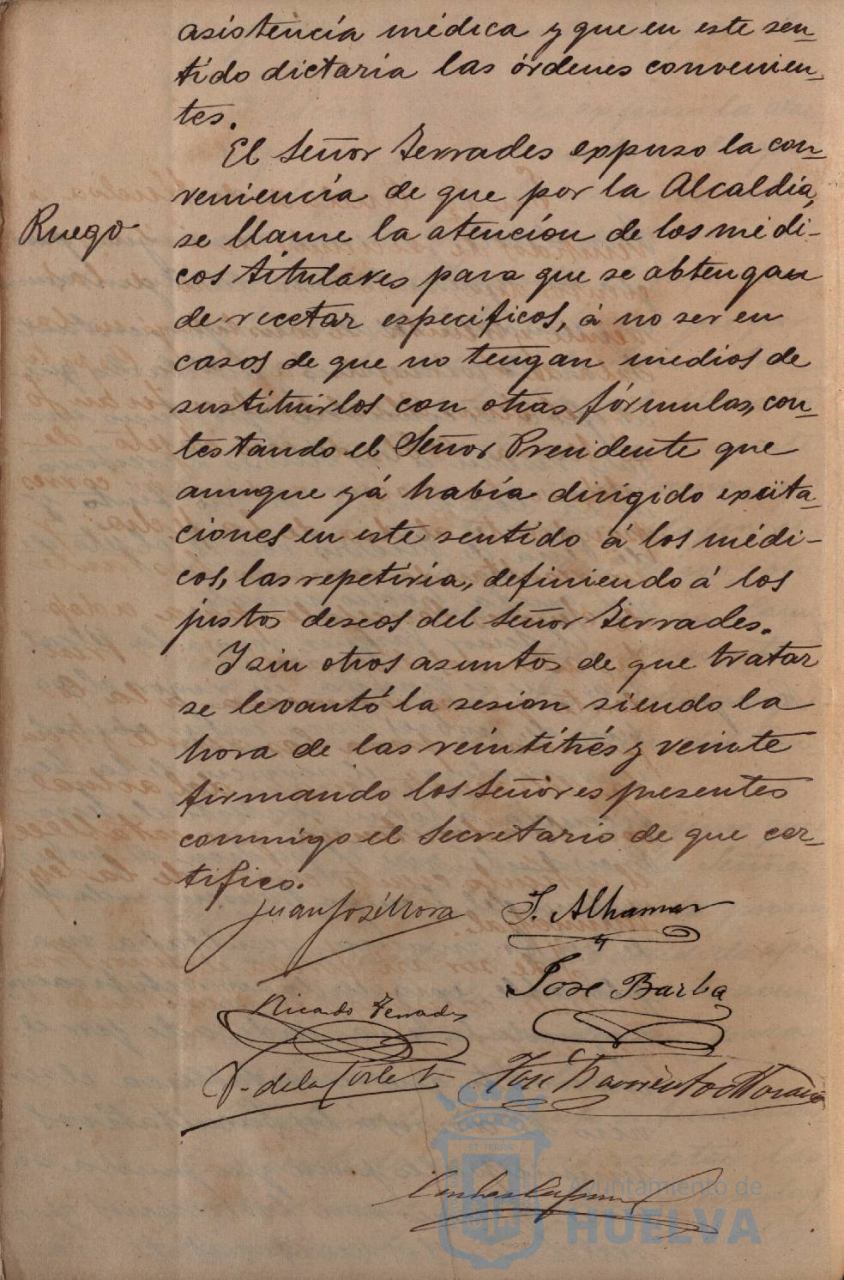 asistencía médica y que en este sen-
tido dictaria las órdenes convenien-
tes.
El Señor Terrades expuso la con-
veniencía de que por la Alcaldía,
Ruego
se llame la atención de los médi-
cos titulares para que se abtengan
de recetar especificos, á no ser en
casos de que no tengan medios de
sustituirlos con otras fórmulas, con-
testando el Señor Presidente que
aunque yá había dirigido exita-
ciones en este sentido á los médi-
cos, las repetiria, definiendo á los
justos deseos del Señor Terrades.
Y sin otros asuntos de que tratar
se levantó la sesion siendo la
hora de las veintitrés y veinte
firmando los Señores presentes
conmigo el Secretario de que cer-
tifico.
Juan José Mora
J. Alhamar
José Barba
Ricardo Terrades
de la Corte
José Barriento
Ayuntamiento de
HUELVA